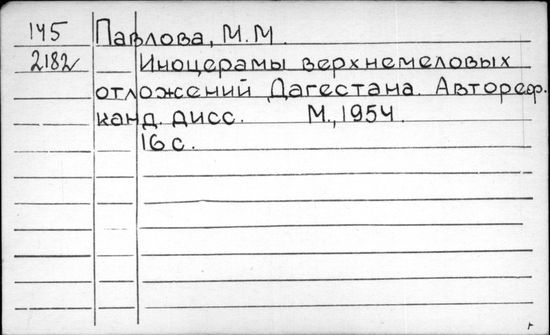 145 Павлова, М.М.
2182 Иноцерамы верхнемеловых
отложений Дагестана. Автореф.
канд. дисс. М., 1954.
16 с.